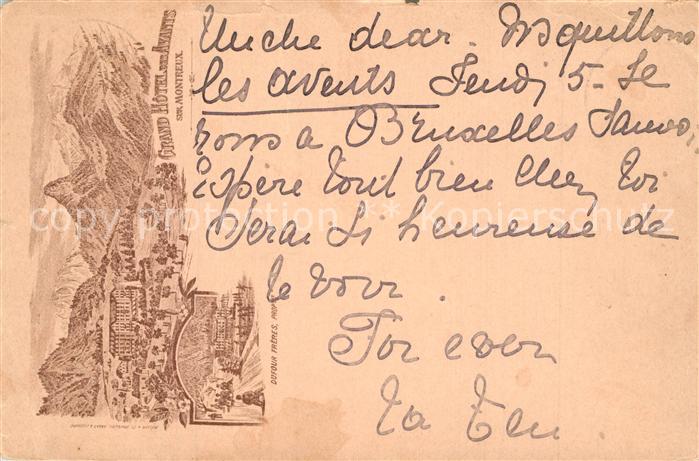 GRAND HÔTEL DES AVANTS
SUR MONTREUX.
DUFOUR FRÈRES, PROP
dear. Ns quittons
les avents Jeudi 5. Se
rons a Bruxelles
Espère tout bien chez toi
Serai si heureuse de
te voir.
For ever
Ta
copy protection ** Kopierschutz